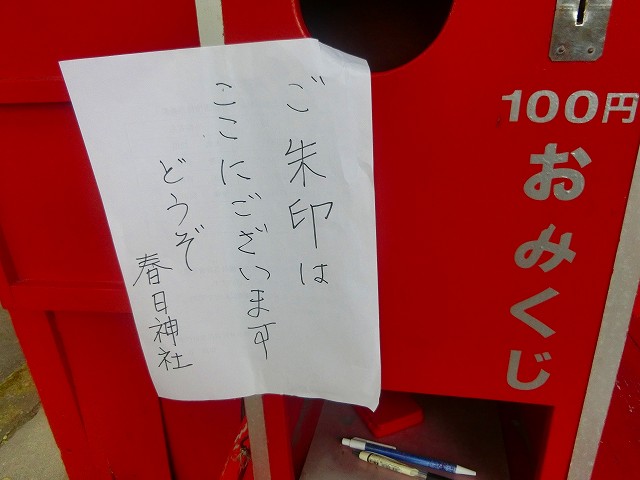 ご朱印は
ここにございます
どうぞ
春日神社
100円
おみくじ